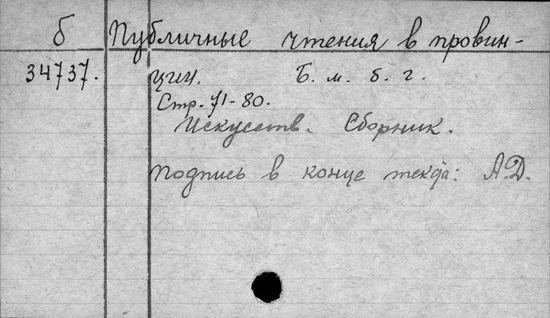 б Публичные чтения в провин-
34737. ции. Б. м. б. г.
Стр. 71-80.
Искусств. Сборник.
Подпись в конце текста: А.Д.